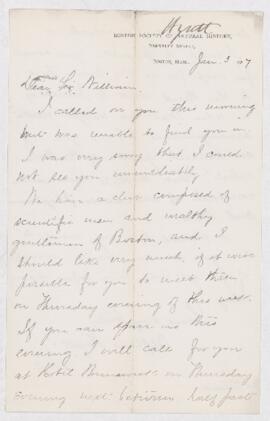 Hyatt
BOSTON SOCIETY OF NATURAL HISTORY,
BERKELEY STREET,
BOSTON, MASS., Jan. 3
Dear Sir William
I called on you this morning
but was unable to find you in.
I was very sorry that I could
not see you immediately.
We have a club composed of
scientific men and wealthy
gentlemen of Boston, and I
should like very much, if at all
possible for you to meet them
on Thursday evening of this week.
If you can spare us this
evening I will call for you
at Hotel Brunswick on Thursday
evening next between half past